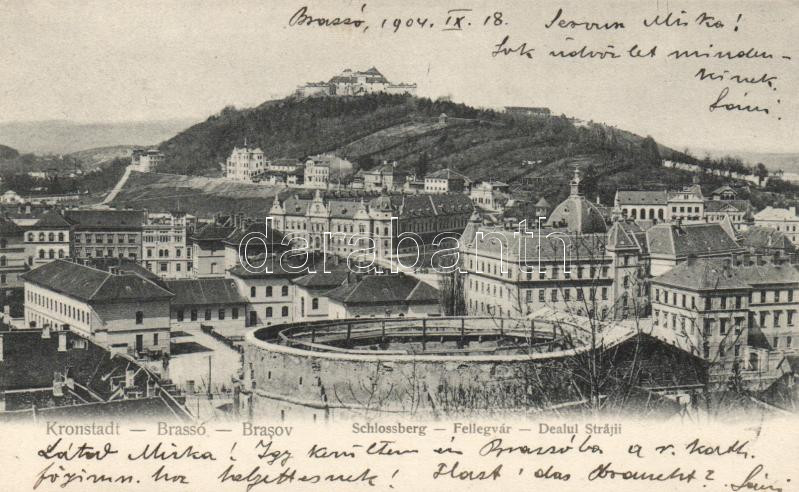 Brassó, 1904. IX. 18.
Servus Miska!
Sok üdvözlet minden-
kinek,
Sámi
darabanth.com
Kronstadt – Brassó – Brașov
Schlossberg – Fellegvár – Dealul Străjii
Látod Miska! Így kerültem én Brassóba a r. kath.
főgimn. hoz helyettesnek! Hast' das 2
Sámi